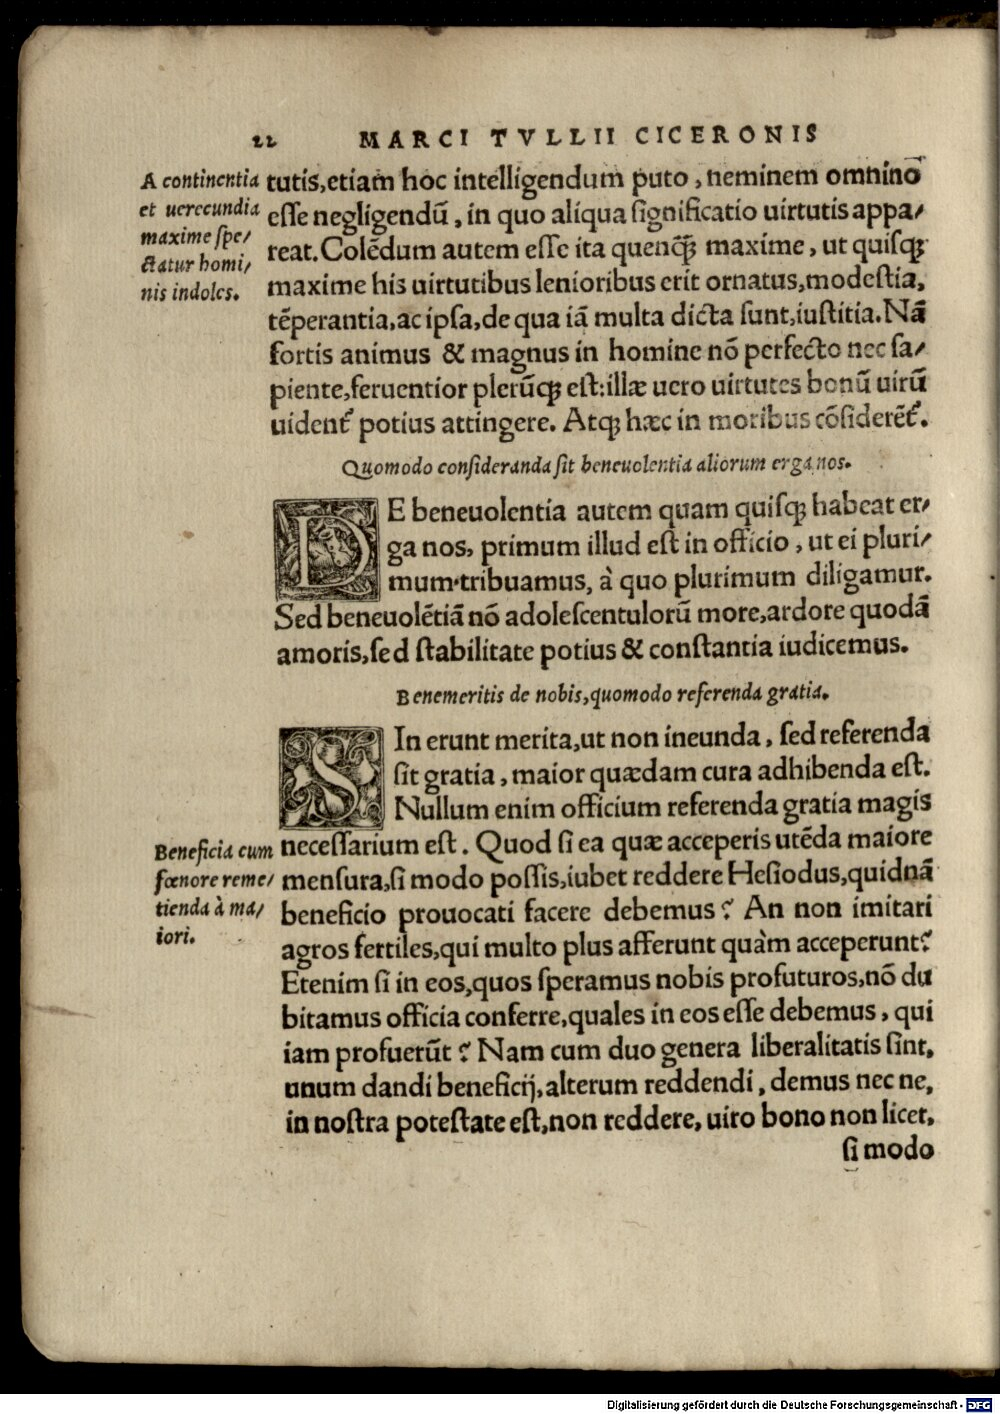 22 MARCI TVLLII CICERONIS
A continentia
et uerecundia
maxime spe/
ctatur homi/
nis indoles.
tutis, etiam hoc intelligendum puto, neminem omnino
eſſe negligendū, in quo aliqua ſignificatio uirtutis appa/
reat. Colēdum autem eſſe ita quenqꝫ maxime, ut quiſqꝫ
maxime his uirtutibus lenioribus erit ornatus, modeſtia,
tēperantia, ac ipſa, de qua iā multa dicta ſunt, iuſtitia. Nā
fortis animus & magnus in homine nō perfecto nec ſa/
piente, feruentior plerūqꝫ eſt: illæ uero uirtutes bonū uirū
uident᷑ potius attingere. Atqꝫ hæc in moribus cōſiderēt᷑.
Quomodo conſideranda ſit beneuolentia aliorum erga nos.
DE beneuolentia autem quam quiſqꝫ habeat er/
ga nos, primum illud eſt in officio, ut ei pluri/
mum tribuamus, à quo plurimum diligamur.
Sed beneuolētiā nō adoleſcentulorū more, ardore quodā
amoris, ſed ſtabilitate potius & conſtantia iudicemus.
Benemeritis de nobis, quomodo referenda gratia.
SIn erunt merita, ut non ineunda, ſed referenda
ſit gratia, maior quædam cura adhibenda eſt.
Nullum enim officium referenda gratia magis
neceſſarium eſt. Quod ſi ea quæ acceperis utēda maiore
menſura, ſi modo poſſis, iubet reddere Heſiodus, quidnā
beneficio prouocati facere debemus? An non imitari
agros fertiles, qui multo plus afferunt quàm acceperunt?
Etenim ſi in eos, quos ſperamus nobis profuturos, nō du
bitamus officia conferre, quales in eos eſſe debemus, qui
iam profuerūt? Nam cum duo genera liberalitatis ſint,
unum dandi beneficij, alterum reddendi, demus nec ne,
in noſtra poteſtate eſt, non reddere, uiro bono non licet,
ſi modo
Beneficia cum
fœnore reme/
tienda à ma/
iori.
Digitalisierung gefördert durch die Deutsche Forschungsgemeinschaft - DFG